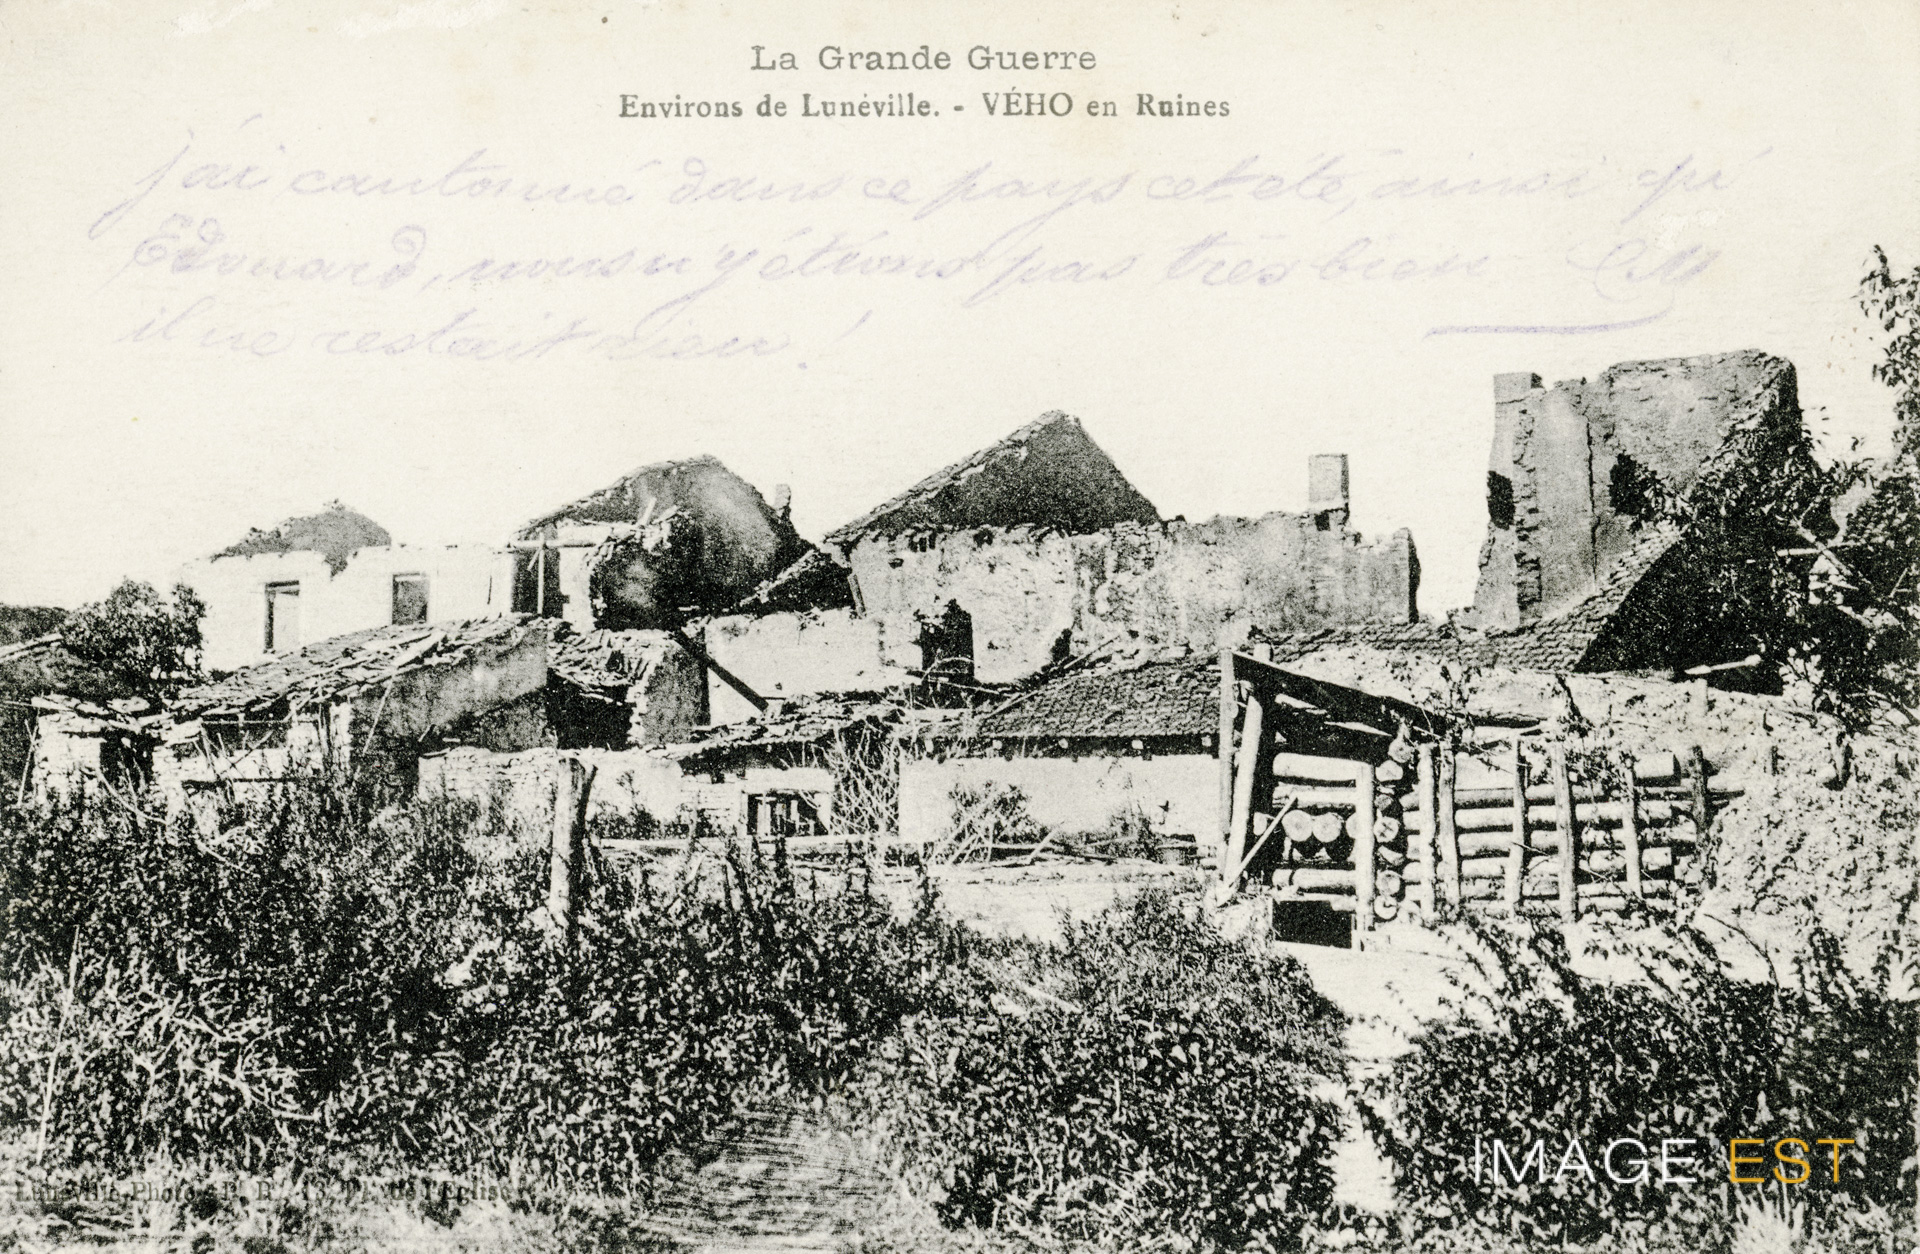 La Grande Guerre
Environs de Lunéville. - VÉHO en Ruines
j'ai cantonné dans ce pays cet été, ainsi qu'
Edouard, nous n'y étions pas très bien
il ne restait rien !
IMAGE EST
Lunéville-Photo, Pl. de l'Eglise